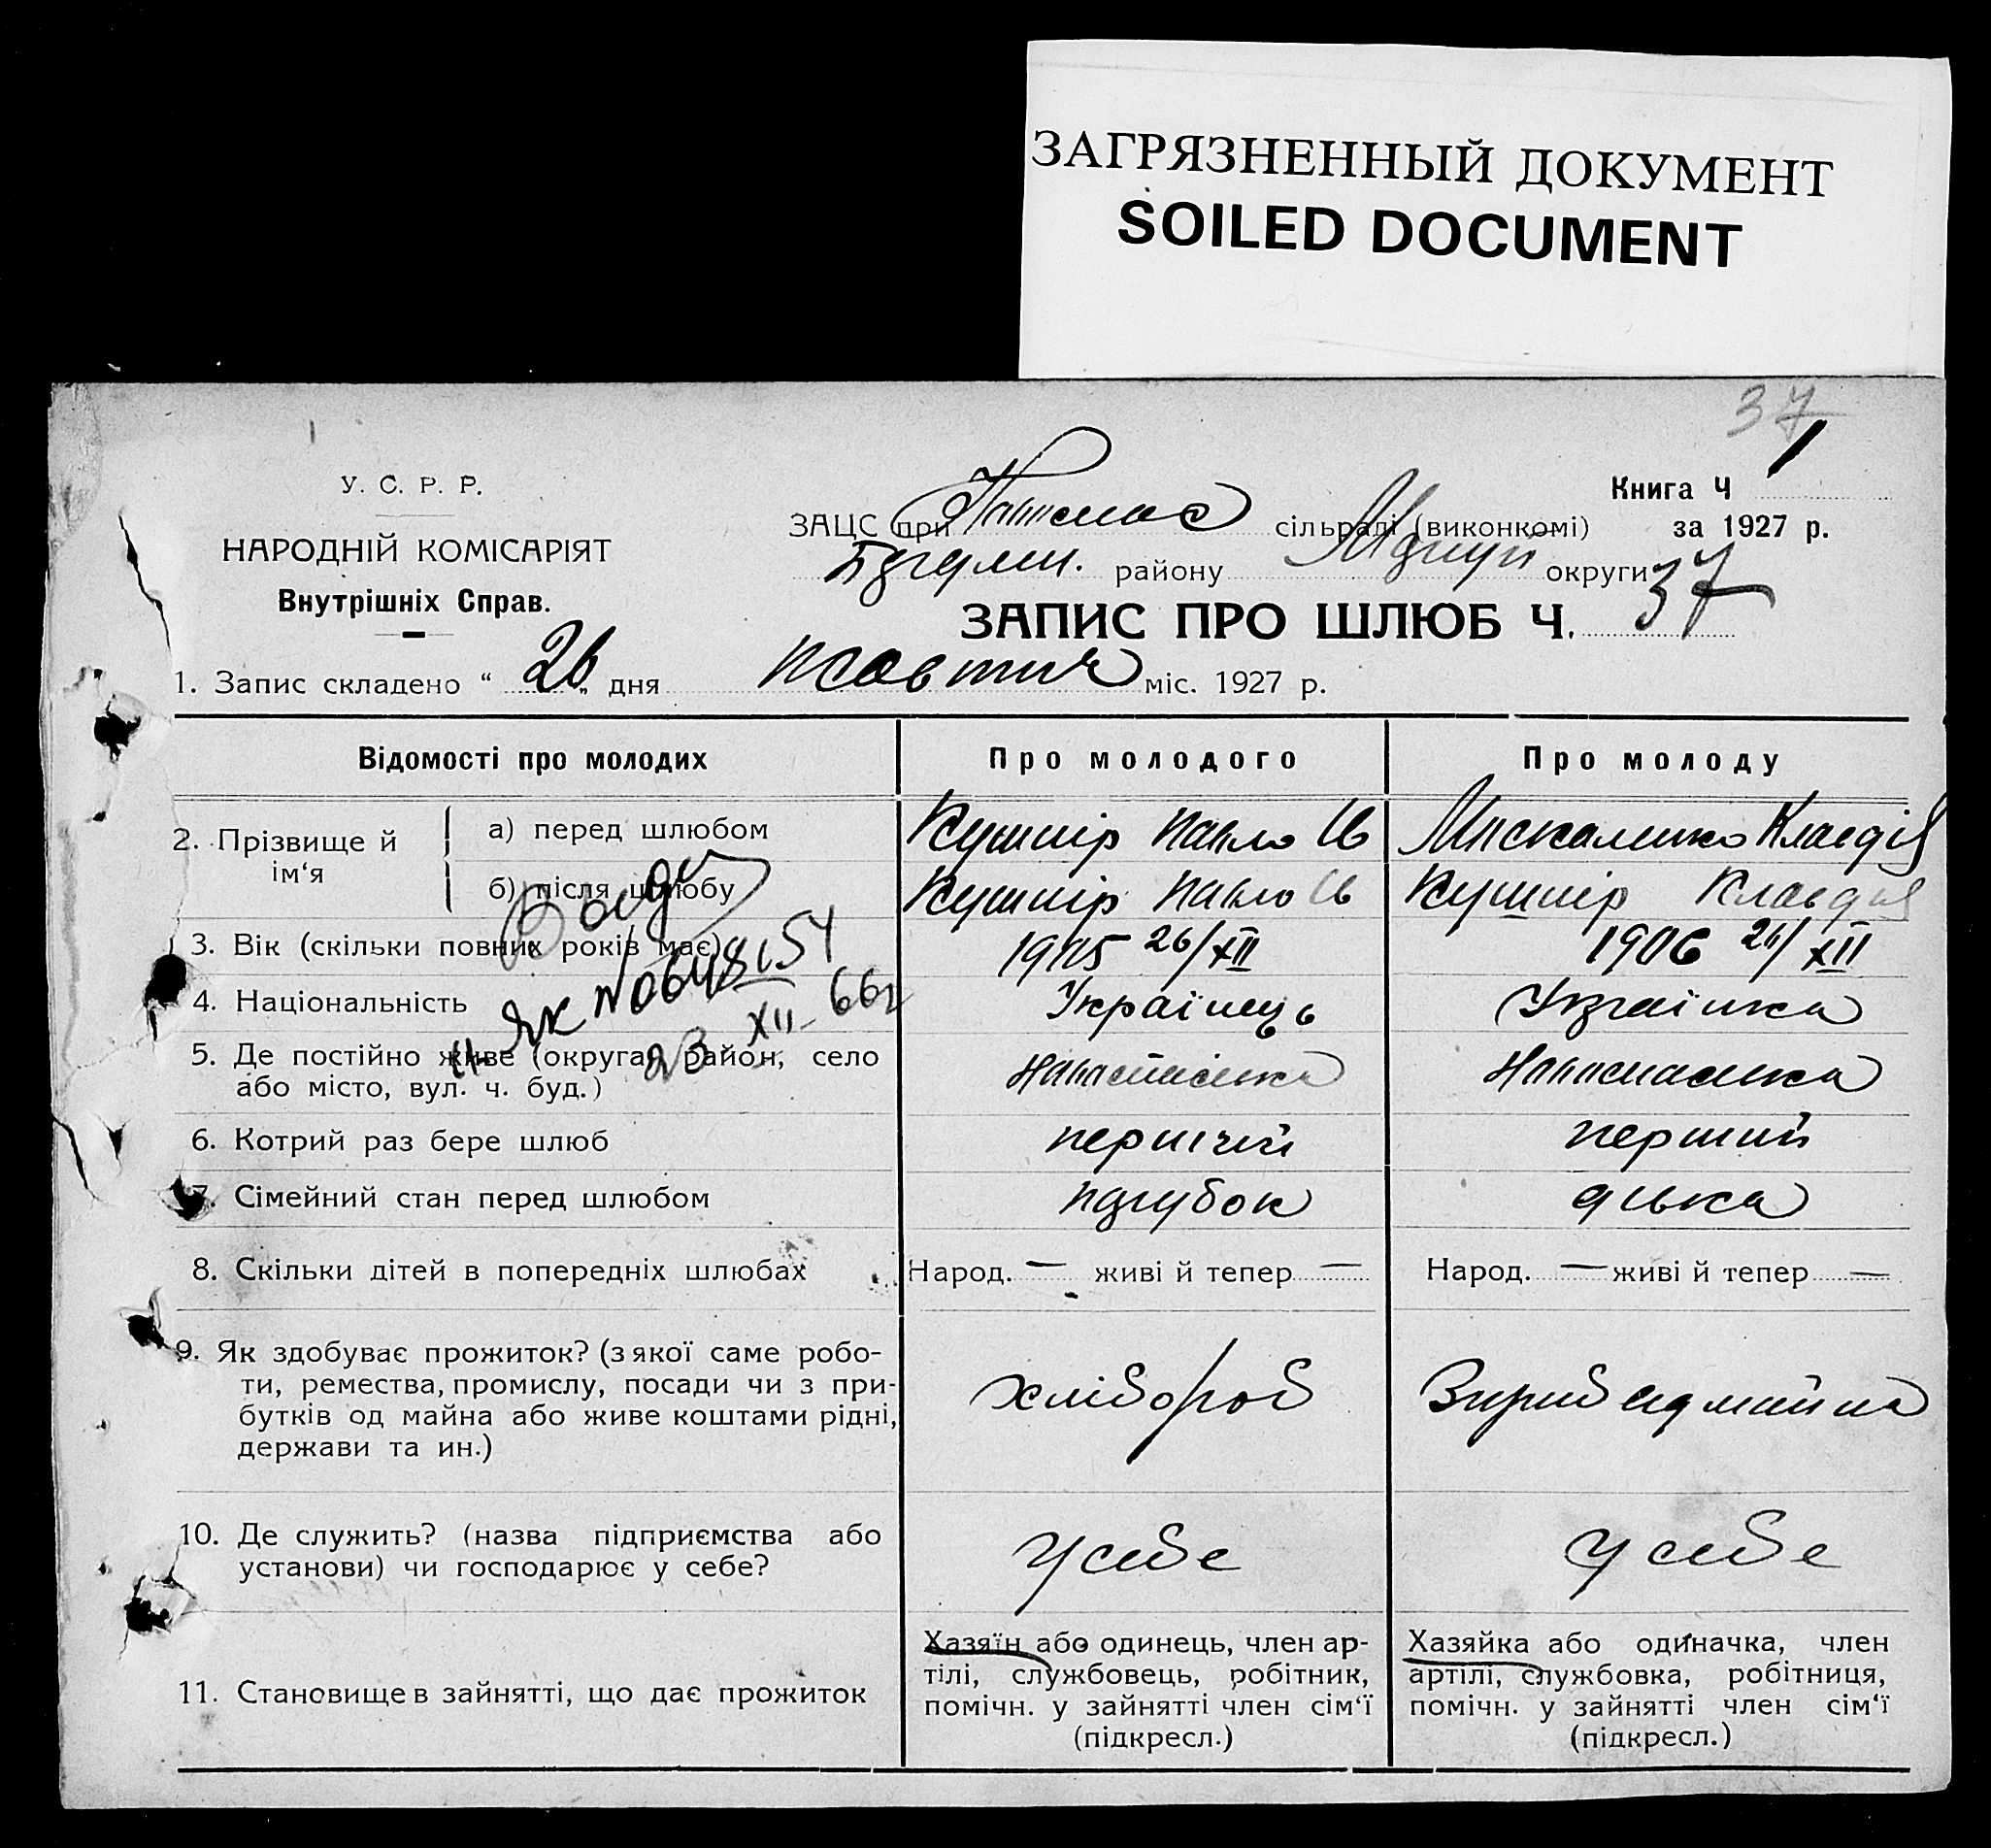 ЗАГРЯЗНЕННЫЙ ДОКУМЕНТ
SOILED DOCUMENT
37
1
У. С. Р. Р.
Книга Ч
ЗАЦС при сільраді (виконкомі) за 1927 р.
НАРОДНІЙ КОМІСАРІЯТ
району округи
Внутрішніх Справ.
ЗАПИС ПРО ШЛЮБ Ч. 37
1. Запис складено “ 26 „ дня жовтня міс. 1927 р.
Відомості про молодих Про молодого Про молоду
2. Прізвище й ім‘я
а) перед шлюбом Кушнір Павло Ів Клавдія
б) після шлюбу Кушнір Павло Ів Кушнір Клавдія
3. Вік (скільки повних років має) 1905 26/XII 1906
4. Національність Українець Українка
XII 66
5. Де постійно живе (округа, район, село
або місто, вул. ч. буд.)
6. Котрий раз бере шлюб перший перший
7. Сімейний стан перед шлюбом парубок дівка
8. Скільки дітей в попередніх шлюбах Народ. — живі й тепер — Народ. — живі й тепер —
9. Як здобуває прожиток? (з якої саме робо-
ти, ремества, промислу, посади чи з при-
бутків од майна або живе коштами рідні,
держави та ин.)
хлібороб
10. Де служить? (назва підприємства або
установи) чи господарює у себе?
у себе у себе
11. Становище в зайнятті, що дає прожиток
Хазяїн або одинець, член ар-
тілі, службовець, робітник,
помічн. у зайнятті член сім‘ї
(підкресл.)
Хазяйка або одиначка, член
артілі, службовка, робітниця,
помічн. у зайнятті член сім‘ї
(підкресл.)